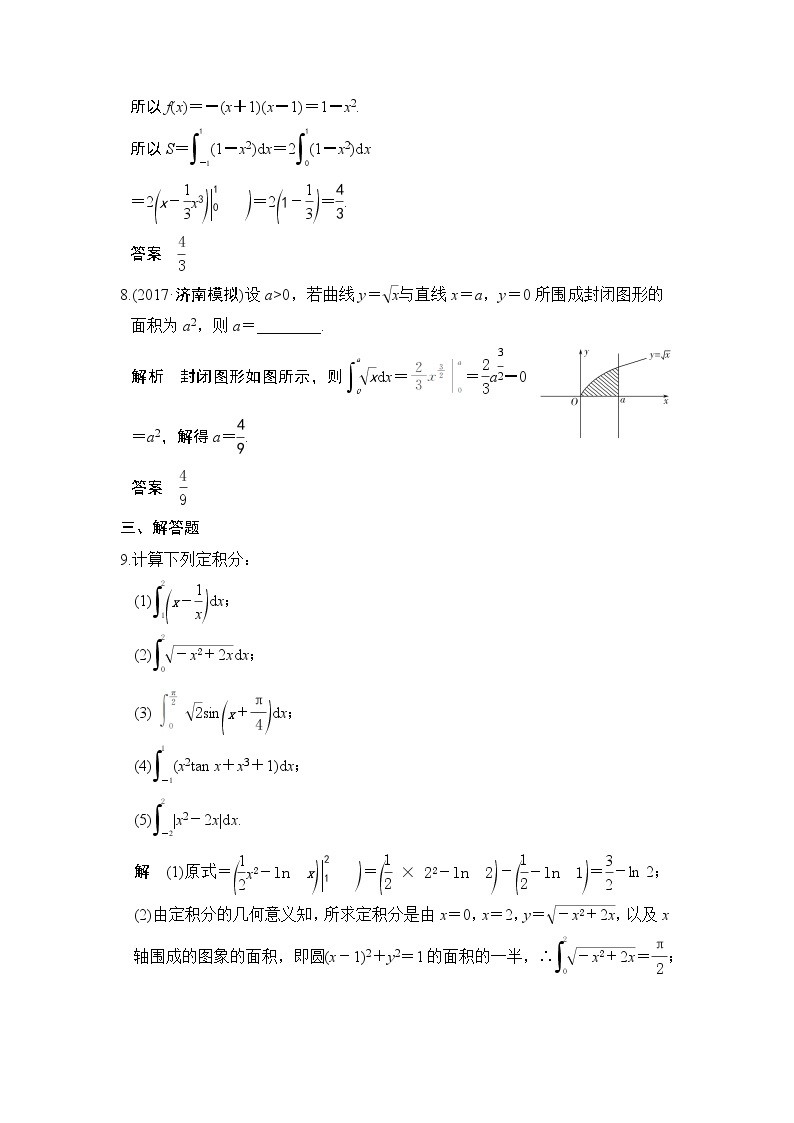 所以 f(x)=-(x+1)(x-1)=1-x².
所以 S=∫₋₁¹(1-x²)dx=2∫₀¹(1-x²)dx
=2(x-1/3x³)|₀¹ )=2(1-1/3)=4/3.
答案 4/3
8.(2017·济南模拟)设 a>0，若曲线 y=√x与直线 x=a，y=0 所围成封闭图形的
面积为 a²，则 a=________.
解析 封闭图形如图所示，则∫₀ᵃ√xdx=2/3x^(3/2)|₀ᵃ=2/3a^(3/2)-0
y y=√x
O a x
=a²，解得 a=4/9.
答案 4/9
三、解答题
9.计算下列定积分：
(1)∫₁²(x-1/x)dx；
(2)∫₀²√(-x²+2x)dx；
(3) ∫₀^(π/2) √2sin(x+π/4)dx；
(4)∫₋₁¹(x²tan x+x³+1)dx；
(5)∫₋₂²|x²-2x|dx.
解 (1)原式=(1/2x²-ln x)|₁² )=(1/2 × 2²-ln 2)-(1/2-ln 1)=3/2-ln 2；
(2)由定积分的几何意义知，所求定积分是由 x=0，x=2，y=√(-x²+2x)，以及 x
轴围成的图象的面积，即圆(x-1)²+y²=1 的面积的一半，∴∫₀²√(-x²+2x)=π/2；